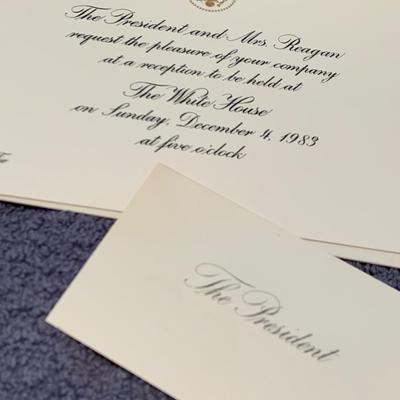 The President and Mrs. Reagan
request the pleasure of your company
at a reception to be held at
The White House
on Sunday, December 4, 1983
at five o'clock
The President